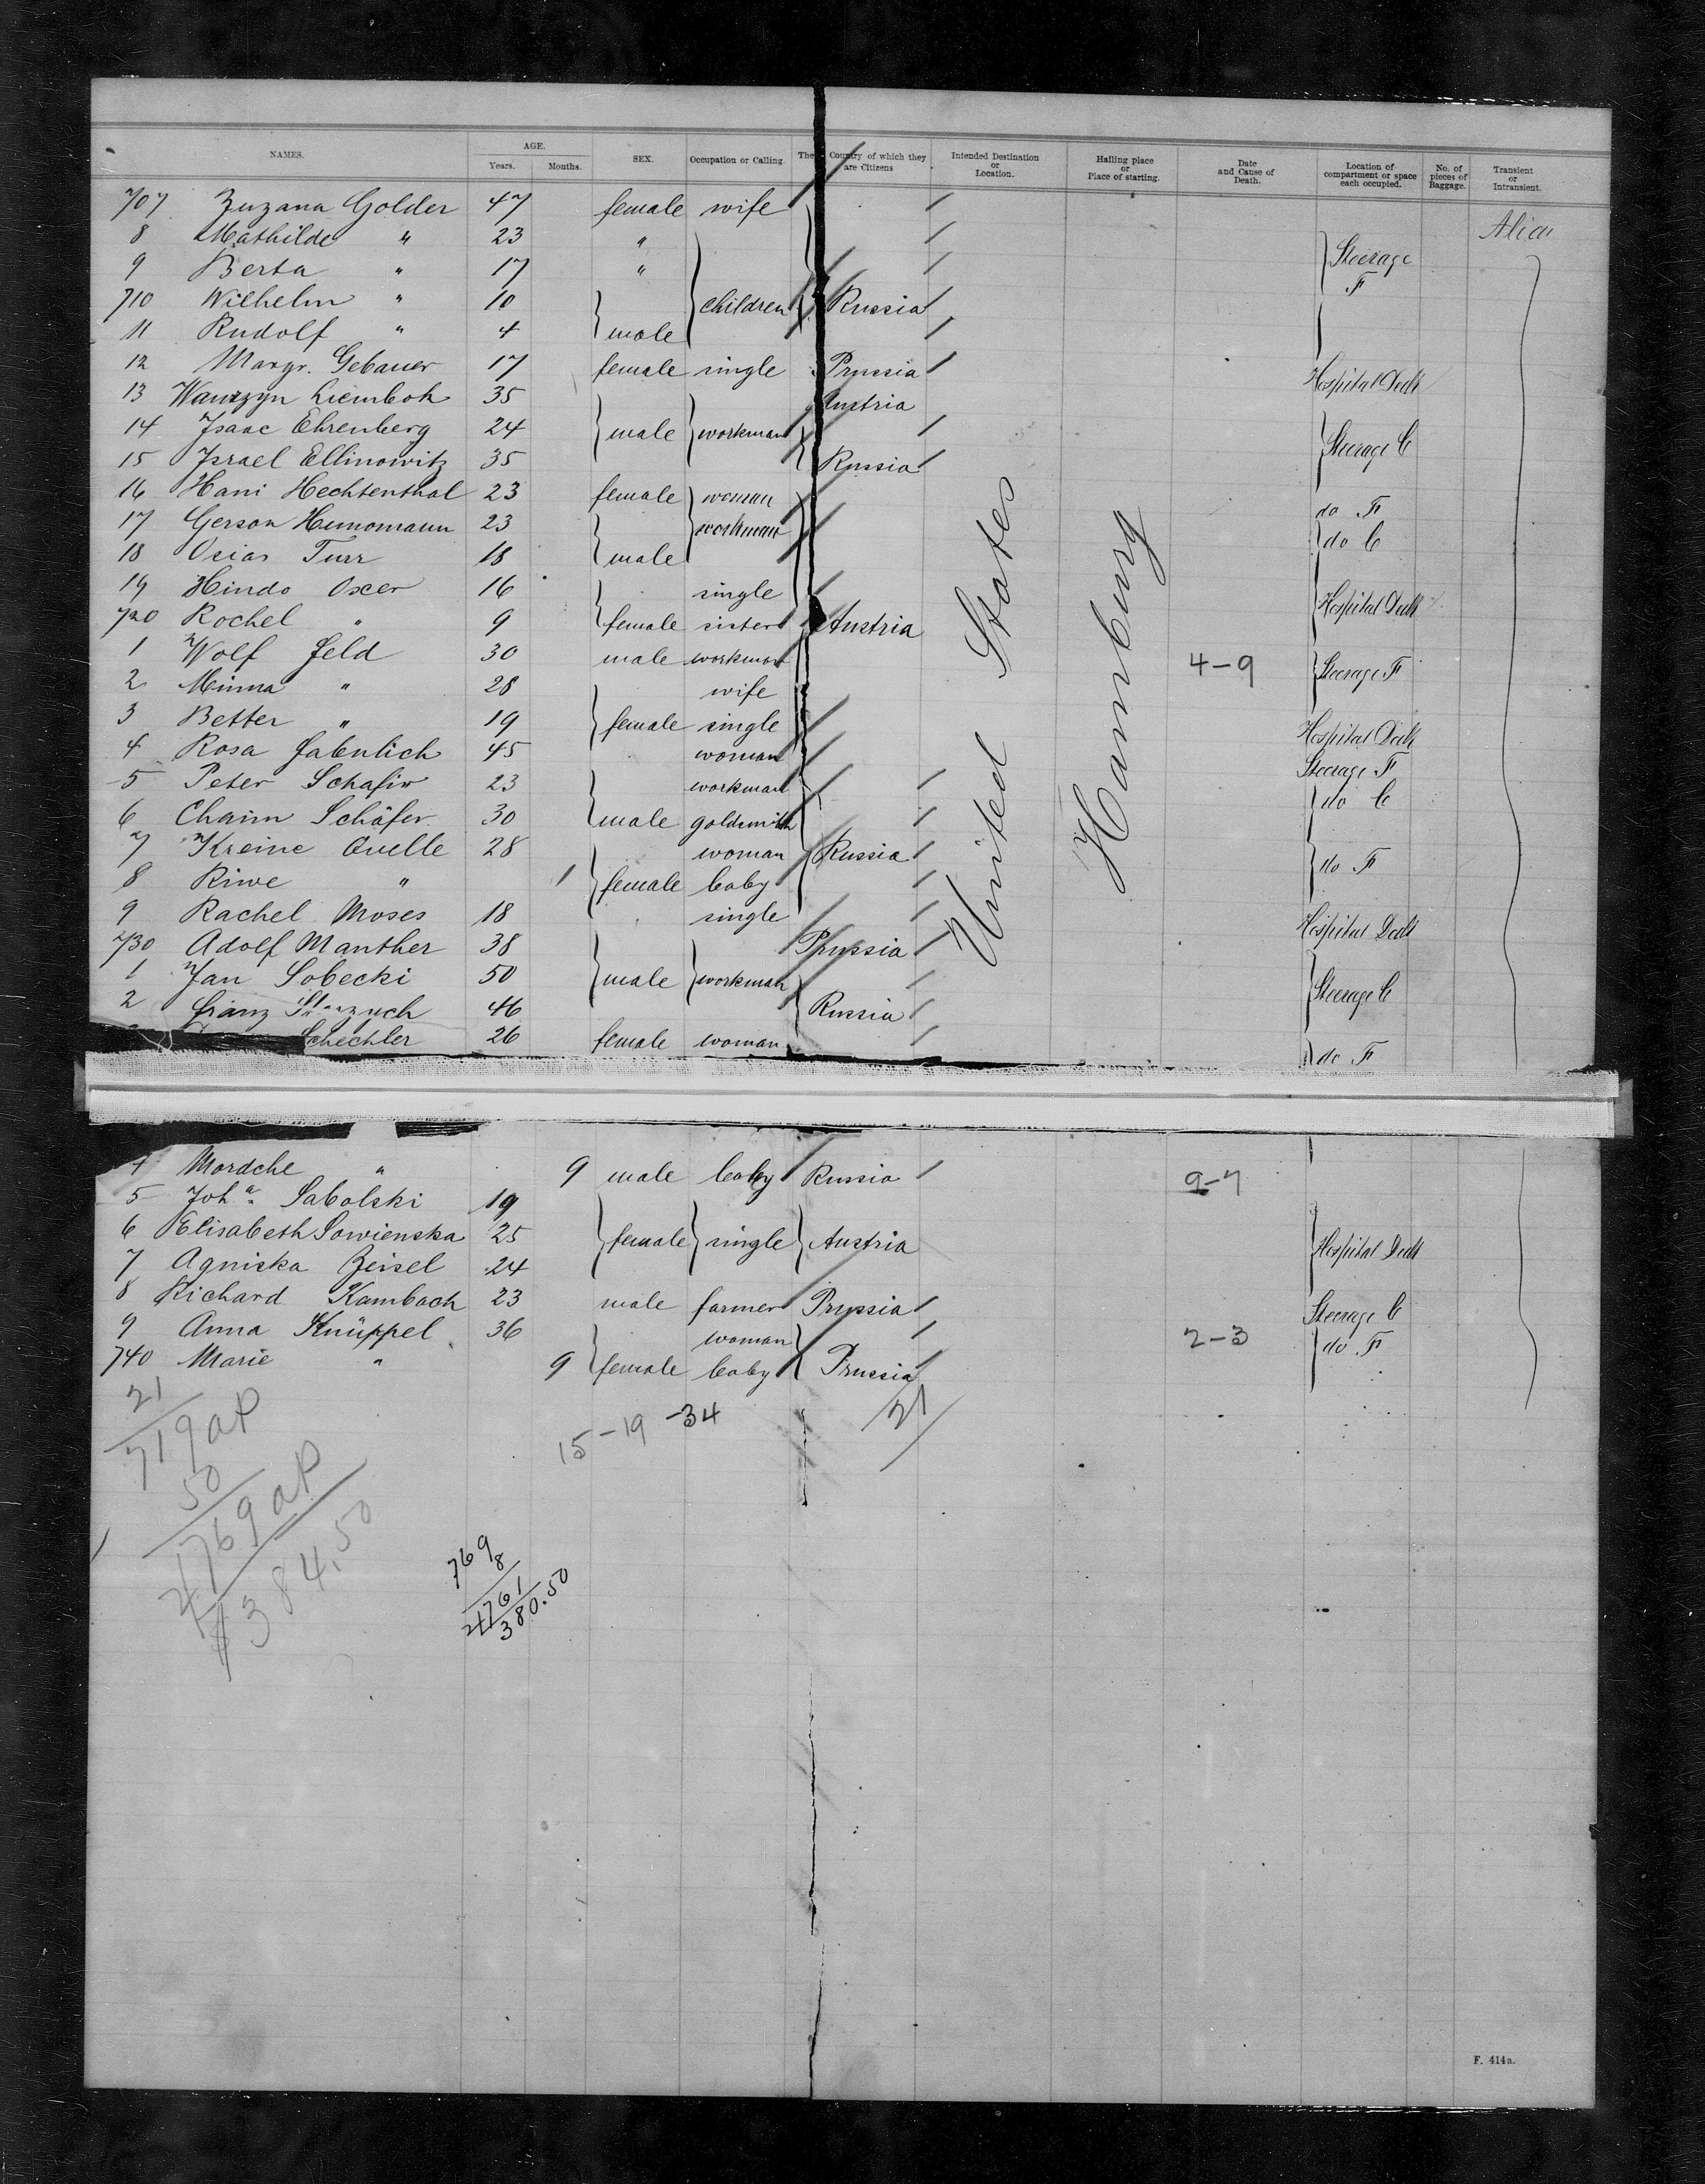 NAMES. AGE. Years. Months. SEX. Occupation or Calling. The Country of which they are Citizens Intended Destination or Location. Hailing place or Place of starting. Date and Cause of Death. Location of compartment or space each occupied. No. of pieces of Baggage. Transient or Intransient.
707 Zuzana Golder 47 female wife
8 Mathilde " 23 "
9 Berta " 17 " Steerage F
710 Wilhelm " 10 children Russia
11 Rudolf " 4 male
12 Margr. Gebauer 17 female single Prussia Hospital Deck
13 35 Austria
14 Isaac Ehrenberg 24 male workman Steerage C
15 Israel Ellinowitz 35 Russia
16 Hani Hechtenthal 23 female woman do F
17 Gerson 23 workman do C
18 Osias Turr 18 male
19 Hindo Oxer 16 single Hospital Deck
720 Rochel " 9 female sister Austria
1 Wolf Feld 30 male workman 4-9 Steerage F
2 Minna " 28 wife
3 Better " 19 female single Hospital Deck
4 Rosa 45 woman Steerage F
5 Peter Schafir 23 workman do C
6 Chaim Schäfer 30 male goldsmith
7 Kreine Quelle 28 woman Russia do F
8 Riwe " 1 female baby
9 Rachel Moses 18 single Hospital Deck
730 Adolf Manther 38 Prussia
1 Jan Sobecki 50 male workman Steerage C
2 Franz 46 Russia
Schechler 26 female woman do F
United States
Hamburg
4 Mordche " 9 male baby Russia 9-7
5 Joh.a Sabolski 19
6 Elisabeth Sowienska 25 female single Austria Hospital Deck
7 Agniska Zeisel 24
8 Richard Kambach 23 male farmer Prussia Steerage C
9 Anna Knüppel 36 woman 2-3 do F
740 Marie " 9 female baby Prussia
21
719
50
769
384.50
15-19-34
21
769
8
761
380.50
F. 414a.